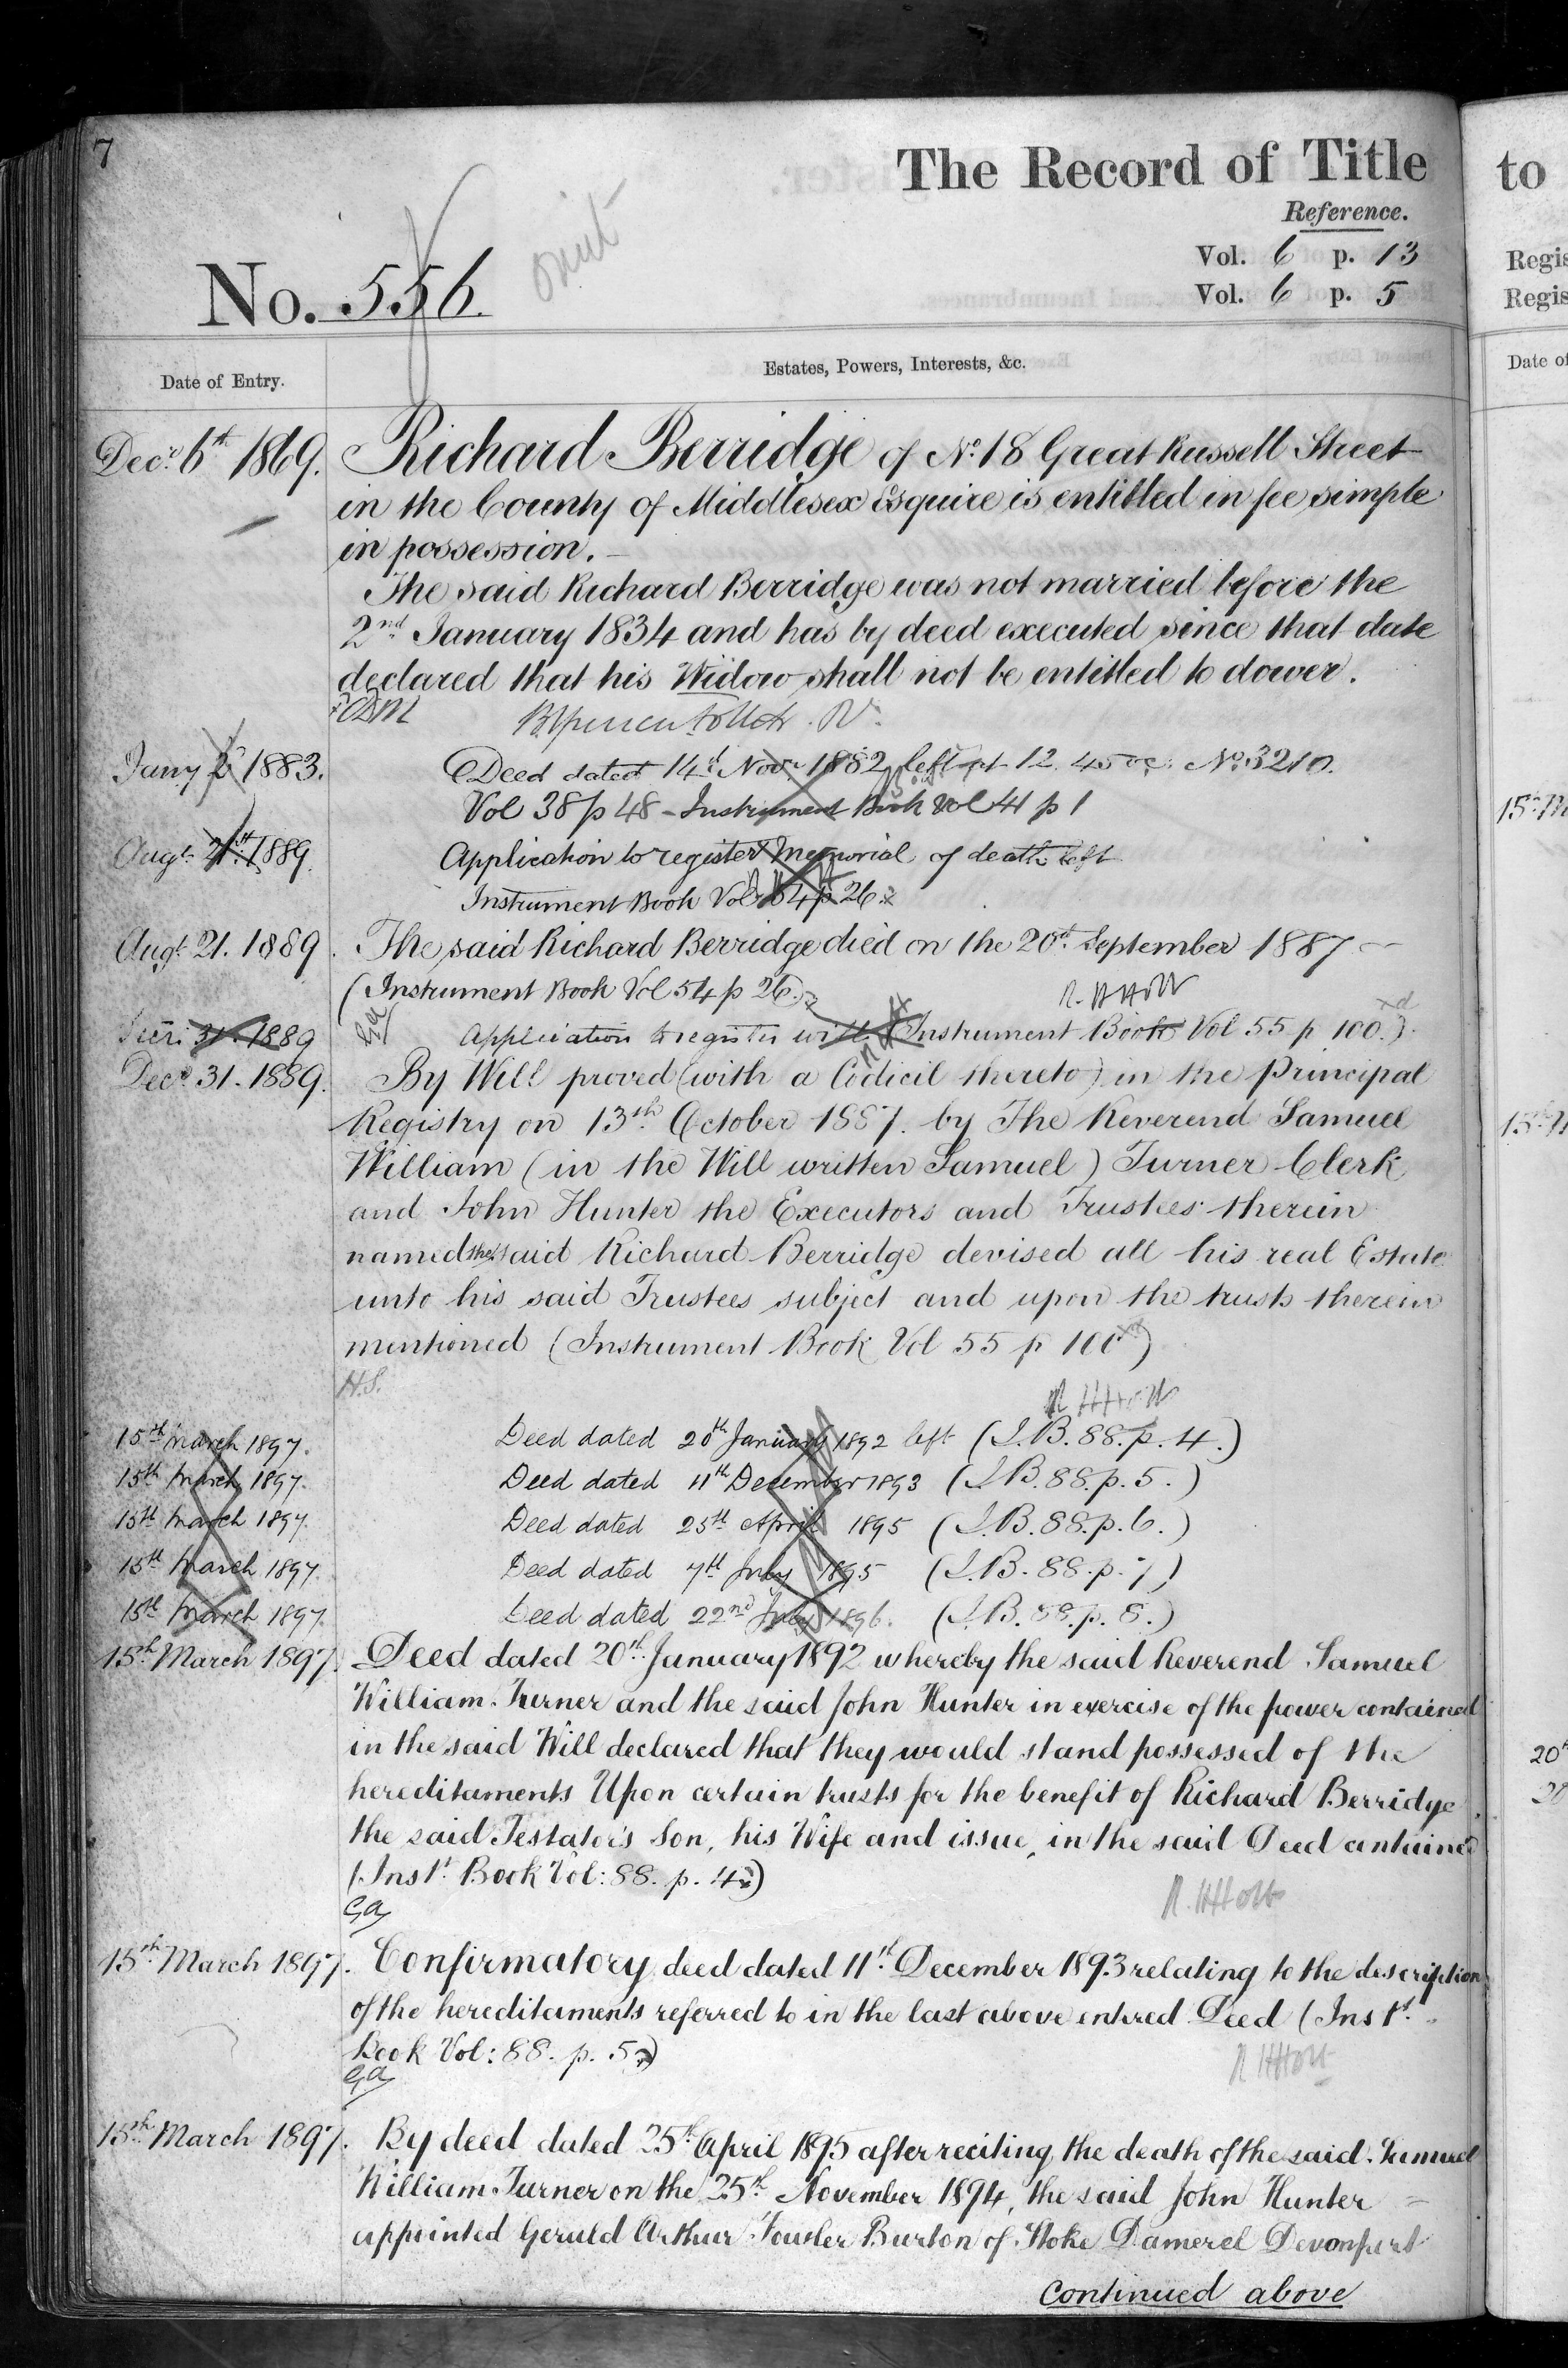 7
The Record of Title
to
Reference.
Vol. 6 p. 13
Vol. 6 p. 5
No. 556.
omit
Regis
Regis
Date of Entry.
Estates, Powers, Interests, &c.
Date of
Decr. 6th 1869. Richard Berridge of No. 18 Great Russell Street
in the County of Middlesex Esquire is entitled in fee simple
in possession.
The said Richard Berridge was not married before the
2nd January 1834 and has by deed executed since that date
declared that his Widow shall not be entitled to dower.
Jany 2 1883. Deed dated 14th Novr 1882 left at 12.45 No. 3210.
Vol 38 p 48 - Instrument Book Vol 41 p 1
Augt. 21st 1889. Application to register Memorial of death left
Instrument Book Vol 54 p 26
Augt. 21. 1889. The said Richard Berridge died on the 20th September 1887
(Instrument Book Vol 54 p 26.)
R. H Holt
31. 1889 Application to register will (Instrument Book Vol 55 p 100.)
Decr. 31. 1889. By Will proved (with a Codicil thereto) in the Principal
Registry on 13th October 1887. by The Reverend Samuel
William (in the Will written Samuel) Turner Clerk
and John Hunter the Executors and Trustees therein
named the said Richard Berridge devised all his real Estate
unto his said Trustees subject and upon the trusts therein
mentioned (Instrument Book Vol 55 p 100)
H.S.
R H Holt
15th March 1897. Deed dated 20th January 1892 left (I.B. 88. p. 4.)
15th March 1897. Deed dated 11th December 1893 (I.B. 88. p. 5.)
15th March 1897. Deed dated 25th April 1895 (I.B. 88. p. 6.)
15th March 1897. Deed dated 7th July 1895 (I.B. 88. p. 7)
15th March 1897. Deed dated 22nd July 1896. (I.B. 88. p. 8.)
15th March 1897. Deed dated 20th January 1892 whereby the said Reverend Samuel
William Turner and the said John Hunter in exercise of the power contained
in the said Will declared that they would stand possessed of the
hereditaments Upon certain trusts for the benefit of Richard Berridge
the said Testator's Son, his Wife and issue, in the said Deed contained
(Inst. Book Vol: 88. p. 4)
R. H Holt
15th March 1897. Confirmatory deed dated 11th December 1893 relating to the description
of the hereditaments referred to in the last above entered Deed (Inst.
Book Vol: 88. p. 5)
R H Holt
15th March 1897. By deed dated 25th April 1895 after reciting the death of the said Samuel
William Turner on the 25th November 1894, the said John Hunter
appointed Gerald Arthur Fowler Burton of Stoke Damerel Devonport
continued above